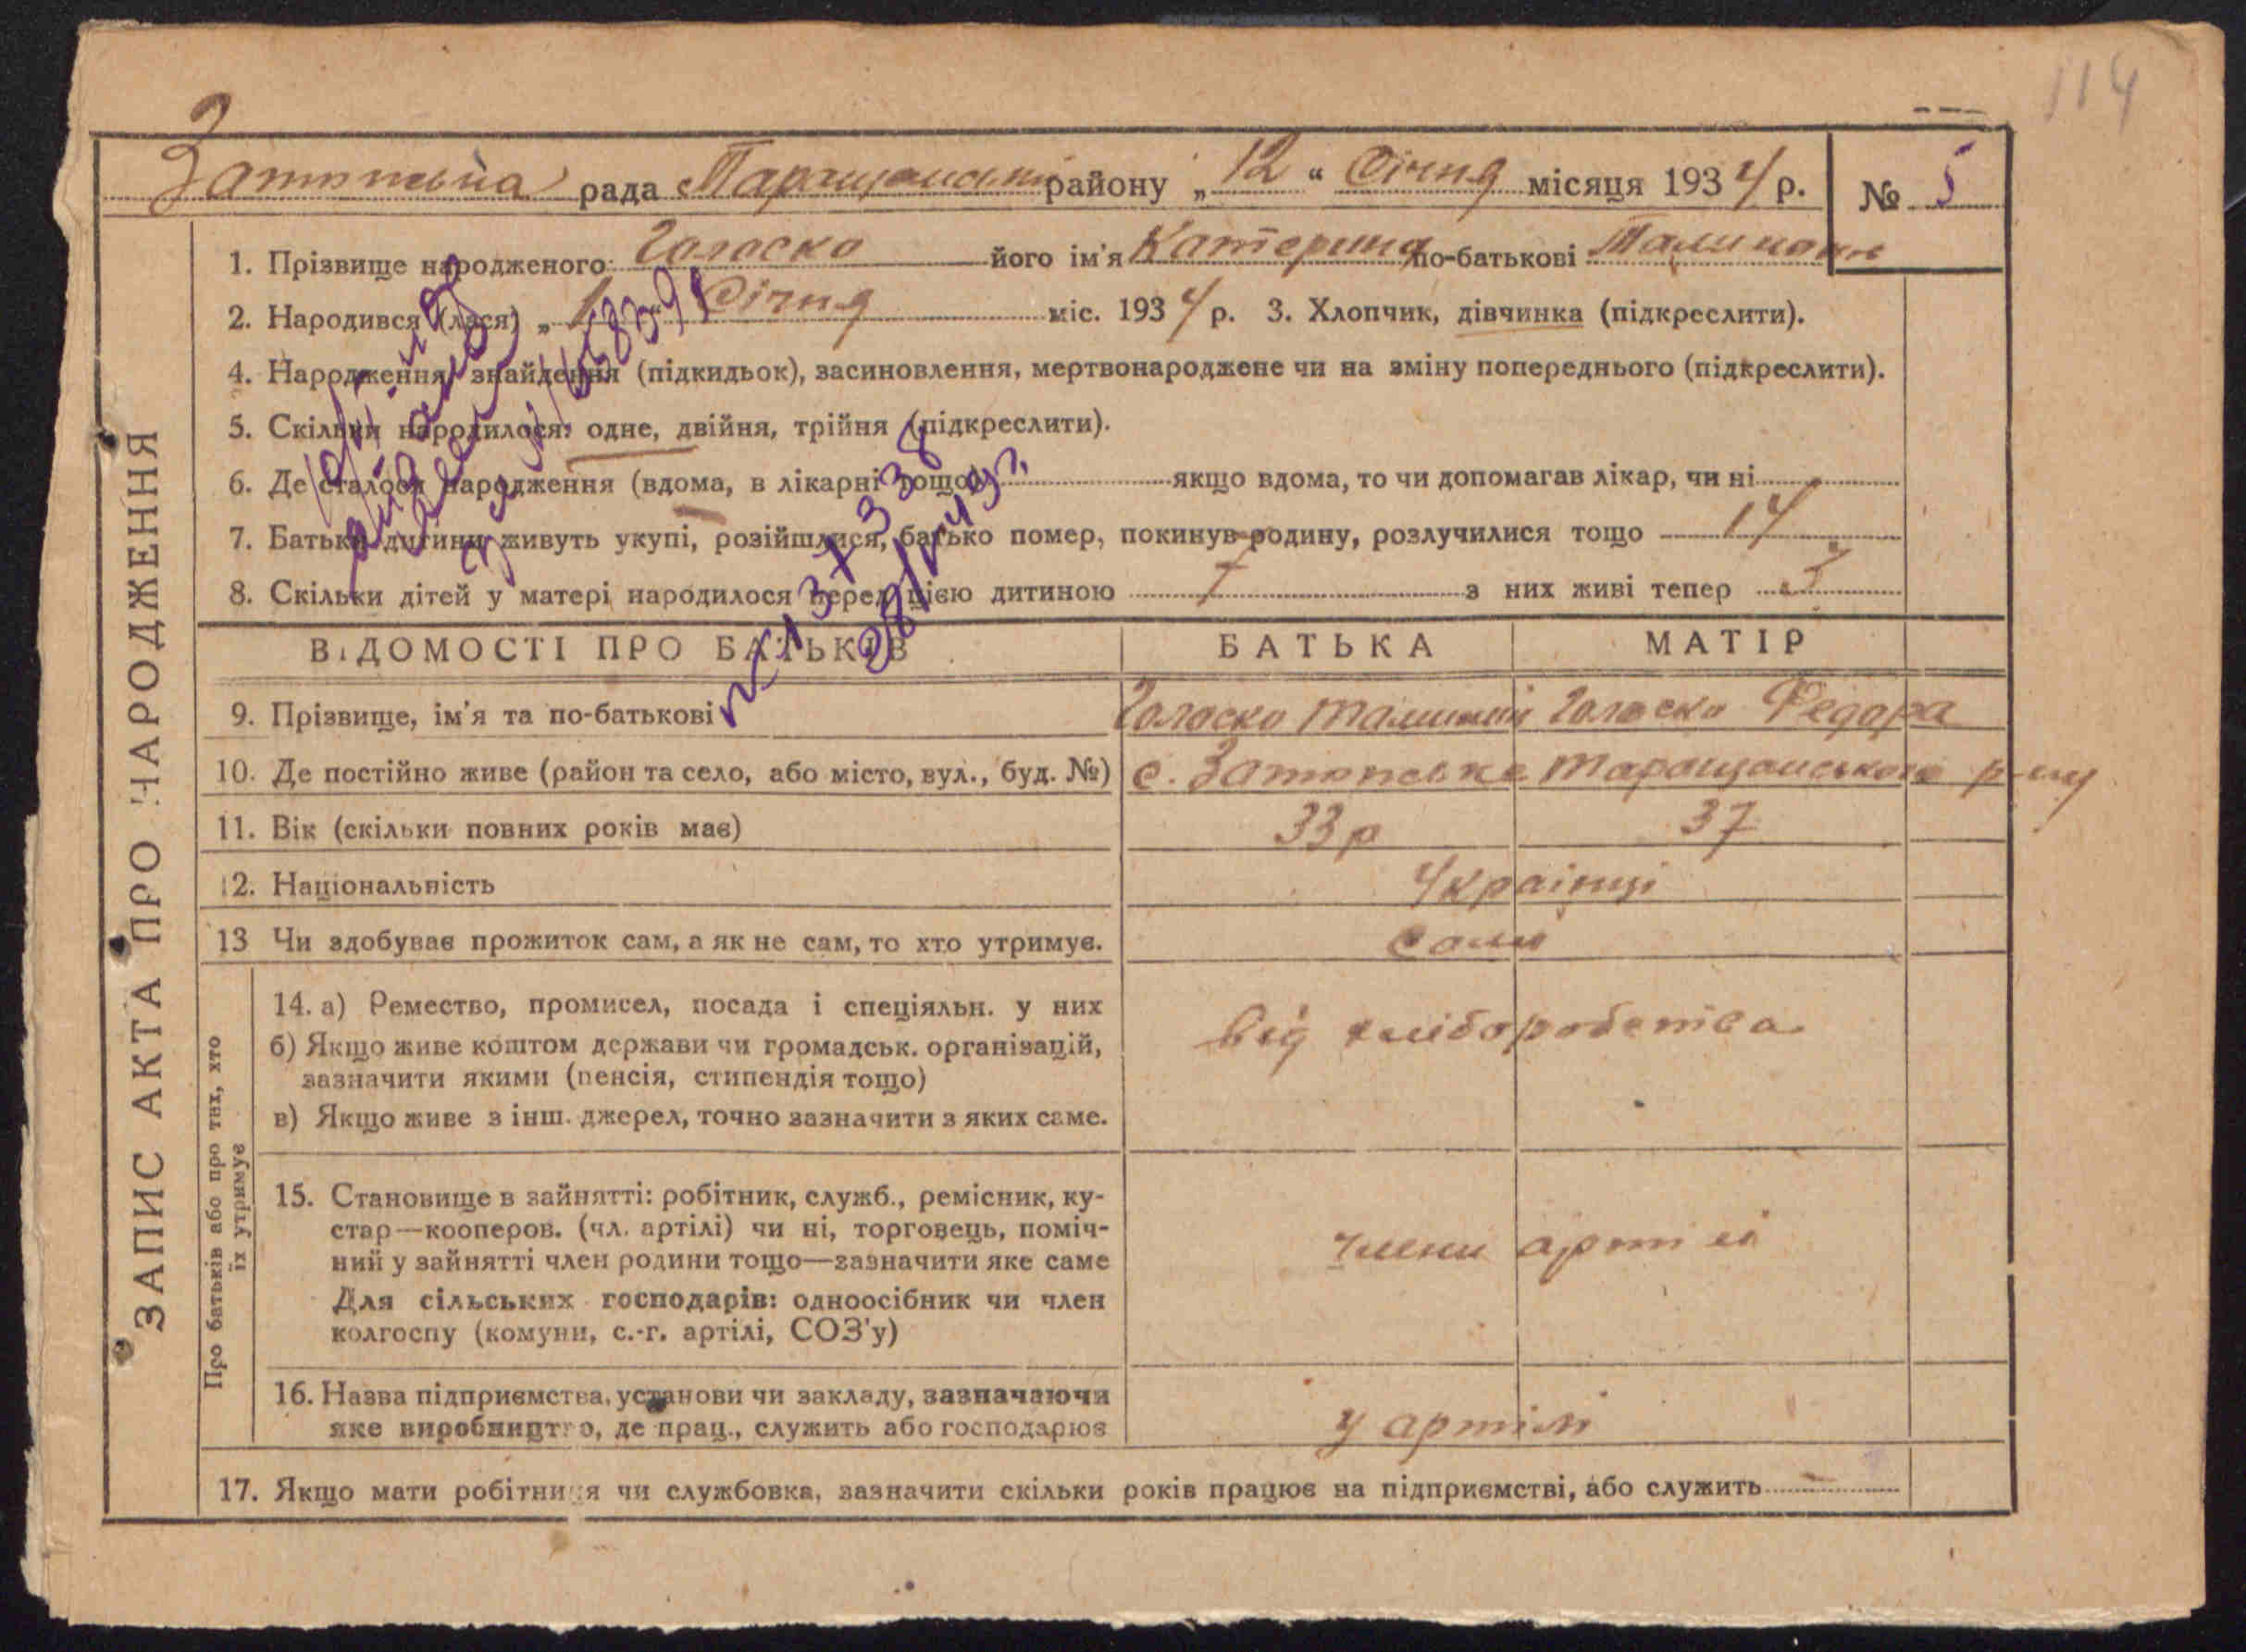 114
рада району „12“ Січня місяця 1934 р. № 5
1. Прізвище народженого: Голоско його ім'я Катерина по-батькові
2. Народився (лася) „1“ Січня міс. 1934 р. 3. Хлопчик, дівчинка (підкреслити).
4. Народження, знайдення (підкидьок), засиновлення, мертвонароджене чи на зміну попереднього (підкреслити).
5. Скільки народилося: одне, двійня, трійня (підкреслити).
6. Де сталося народження (вдома, в лікарні тощо) якщо вдома, то чи допомагав лікар, чи ні
7. Батьки дитини живуть укупі, розійшлися, батько помер, покинув родину, розлучилися тощо 14
8. Скільки дітей у матері народилося перед цією дитиною 7 з них живі тепер 3
ВІДОМОСТІ ПРО БАТЬКІВ БАТЬКА МАТІР
9. Прізвище, ім'я та по-батькові Голоско Голоско Федора
10. Де постійно живе (район та село, або місто, вул., буд. №) с. Таращанського р-ну
11. Вік (скільки повних років має) 33 р 37
12. Національність Українці
13 Чи здобуває прожиток сам, а як не сам, то хто утримує. сами
14. а) Ремество, промисел, посада і спеціяльн. у них
б) Якщо живе коштом держави чи громадськ. організацій,
зазначити якими (пенсія, стипендія тощо)
в) Якщо живе з інш. джерел, точно зазначити з яких саме.
від хліборобства
15. Становище в зайнятті: робітник, служб., ремісник, ку-
стар—кооперов. (чл. артілі) чи ні, торговець, поміч-
ний у зайнятті член родини тощо—зазначити яке саме
Для сільських господарів: одноосібник чи член
колгоспу (комуни, с.-г. артілі, СОЗ'у)
члени артілі
16. Назва підприємства, установи чи закладу, зазначаючи
яке виробництво, де прац., служить або господарює
у артілі
17. Якщо мати робітниця чи службовка, зазначити скільки років працює на підприємстві, або служить —
ЗАПИС АКТА ПРО НАРОДЖЕННЯ
Про батьків або про тих, хто
їх утримує